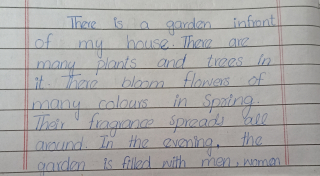 There is a garden infront
of my house. There are
many plants and trees in
it. There bloom flowers of
many colours in Spring.
Their fragrance spreads all
around. In the evening, the
garden is filled with men, women